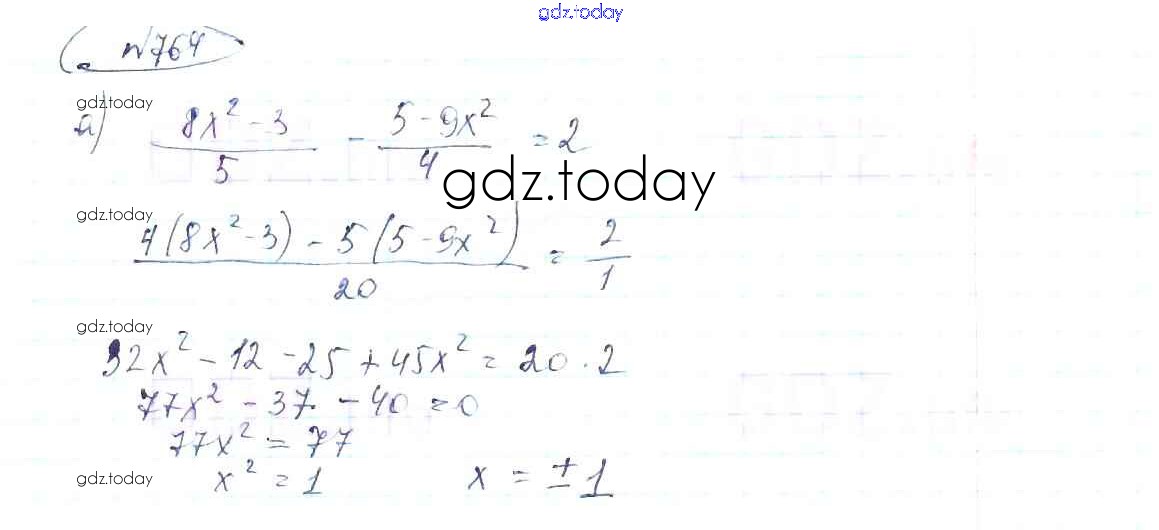 gdz.today
№764
gdz.today
а) (8x² - 3)/5 - (5 - 9x²)/4 = 2
gdz.today
gdz.today
(4(8x² - 3) - 5(5 - 9x²))/20 = 2/1
gdz.today
32x² - 12 - 25 + 45x² = 20 · 2
77x² - 37 - 40 = 0
77x² = 77
gdz.today
x² = 1 x = ±1